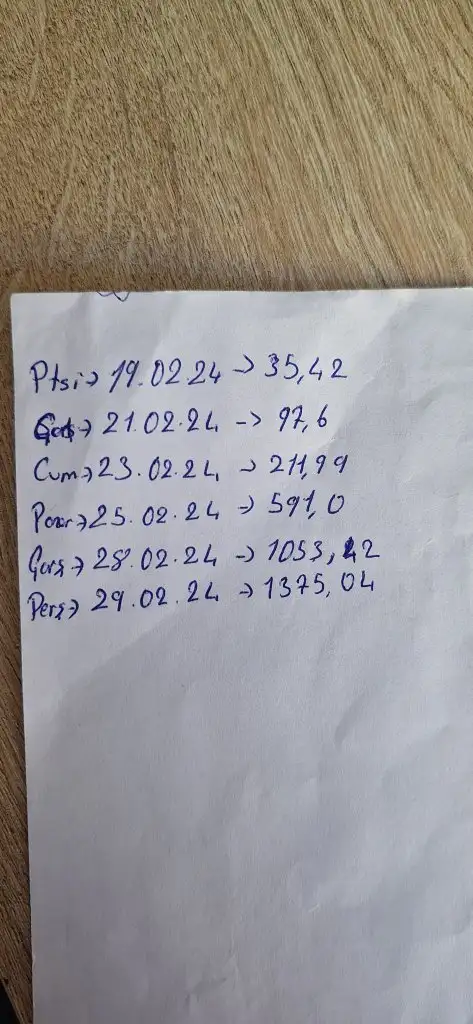 Ptsi→ 19.02.24 → 35,42
Çarş→ 21.02.24 -> 97,6
Cum→ 23.02.24 → 211,99
Pazar→ 25.02.24 → 591,0
Çarş→ 28.02.24 → 1053,42
Perş→ 29.02.24 → 1375,04